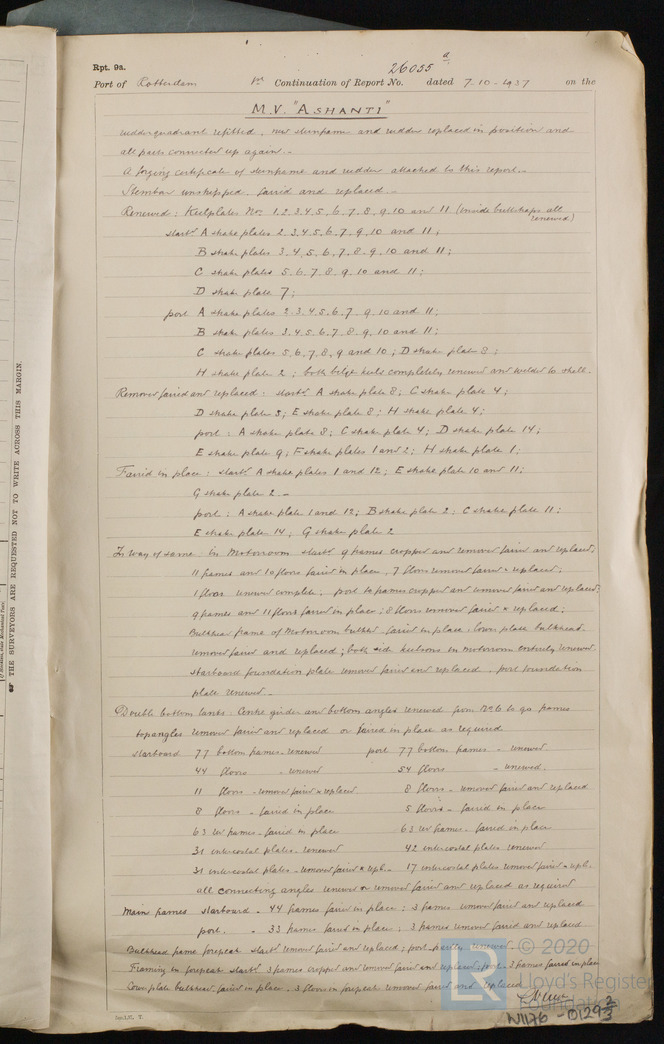 Rpt. 9a.
26055 a
Port of Rotterdam 1st Continuation of Report No. dated 7-10-1937 on the
M.V. "ASHANTI"
rudderquadrant refitted, new sternframe and rudder replaced in position and
all parts connected up again.-
A forging certificate of sternframe and rudder attached to this report.-
Stembar unshipped, faired and replaced.-
Renewed: Keelplates No. 1.2.3.4.5.6.7.8.9.10 and 11 (inside buttstraps all renewed)
starbd A strake plates 2.3.4.5.6.7.9.10 and 11;
B strake plates 3.4.5.6.7.8.9.10 and 11;
C strake plates 5.6.7.8.9.10 and 11;
D strake plate 7;
port A strake plates 2.3.4.5.6.7.9.10 and 11;
B strake plates 3.4.5.6.7.8.9.10 and 11;
C strake plates 5.6.7.8.9 and 10; D strake plate 8;
H strake plate 2; both bilge keels completely renewed and welded to shell.
Removed faired and replaced: starbd A strake plate 8; C strake plate 4;
D strake plate 3; E strake plate 8; H strake plate 4;
port: A strake plate 8; C strake plate 4; D strake plate 14;
E strake plate 9; F strake plates 1 and 2; H strake plate 1;
Faired in place: starbd A strake plates 1 and 12; E strake plate 10 and 11;
G strake plate 2.-
port: A strake plate 1 and 12; B strake plate 2; C strake plate 11;
E strake plate 14; G strake plate 2
In way of same: In Motorroom starbd 9 frames cropped and removed faired and replaced;
11 frames and 10 floors faired in place, 7 floors removed faired & replaced;
1 floor renewed complete; port 10 frames cropped and removed faired and replaced;
9 frames and 11 floors faired in place; 8 floors removed faired & replaced;
Bulkhead frame of Motorroom bulkhd faired in place, lower plate bulkhead
removed faired and replaced; both side keelsons in motorroom entirely renewed
starboard foundation plate removed faired and replaced, port foundation
plate renewed.-
Double bottom tanks: Centre girder and bottom angles renewed from No 6 to 90 frames
topangles removed faired and replaced or faired in place as required
starboard 77 bottom frames - renewed port 77 bottom frames - renewed
44 floors - renewed 54 floors - renewed.
11 floors - removed faired & replaced 8 floors - removed faired and replaced
8 floors - faired in place 5 floors - faired in place
63 rev frames - faired in place 63 rev frames - faired in place
31 intercostal plates - renewed 42 intercostal plates renewed
31 intercostal plates - removed faired & repl. 17 intercostal plates removed faired & repl.
all connecting angles renewed or removed faired and replaced as required
Main frames starboard - 44 frames faired in place; 3 frames removed faired and replaced
port. - 33 frames faired in place; 3 frames removed faired and replaced
Bulkhead frame forepeak starbd removed faired and replaced; port partly renewed
Framing in forepeak starbd 3 frames cropped and removed faired and replaced; port 3 frames faired in place
Lower plate bulkhead faired in place. 3 floors in forepeak removed faired and replaced
© 2020
LR
Lloyd's Register
Foundation
W1176-0129 2/3
THE SURVEYORS ARE REQUESTED NOT TO WRITE ACROSS THIS MARGIN.